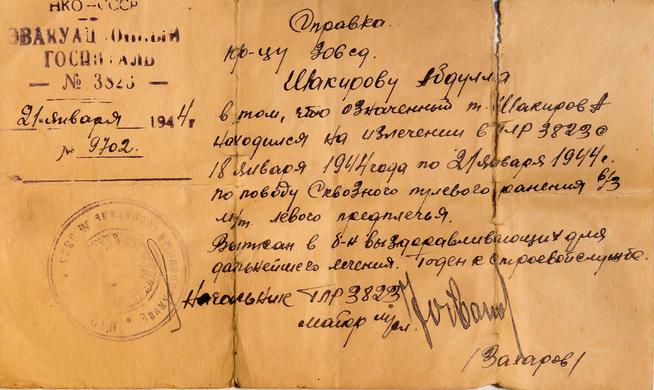 НКО–СССР
ЭВАКУАЦИОННЫЙ
ГОСПИТАЛЬ
— № 3823 —
21 января 1944 г
№ 9702.
Справка.
кр-цу
Шакирову Абдулла
в том, что означенный т. Шакиров А
находился на излечении в ГЛР 3823 с
18 января 1944 года по 21 января 1944 г.
по поводу Сквозного пулевого ранения
м/т. левого предплечья.
Выписан в б-н выздоравливающих для
дальнейшего лечения. Годен к строевой службе.
Начальник ГЛР 3823
майор м/сл.
/Захаров/